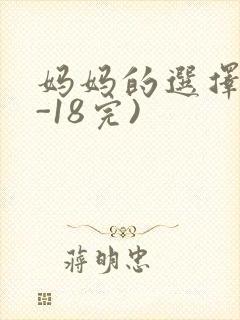 妈妈的選擇
-18完)
蔣明忠